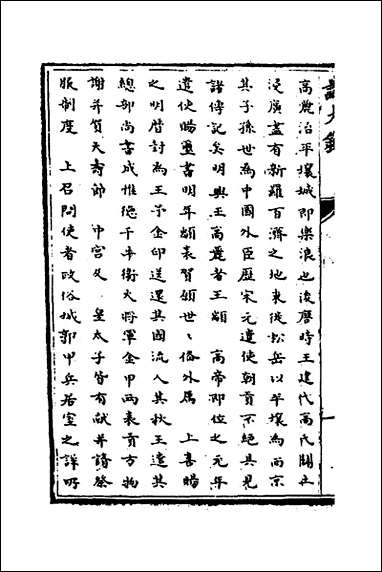 高麗治平壤城即樂浪也後唐時王建代高氏闢土
浸廣蓋有新羅百濟之地東徙松岳以平壤為西京
其子孫世為中國外臣歷宋元遣使朝貢不絕具見
諸傳記矣明興王高麗者王顓　高帝即位之元年
遣使賜璽書明年顓表賀願世〻俻外属　上喜賜
之明曆封為王予金印送還其國流人其秋王遣其
總部尚書成惟德千牛衛大將軍金甲兩表貢方物
謝并賀天壽節　中宮及　皇太子皆有献并請祭
服制度　上召問使者政俗城郭甲兵居室之詳所